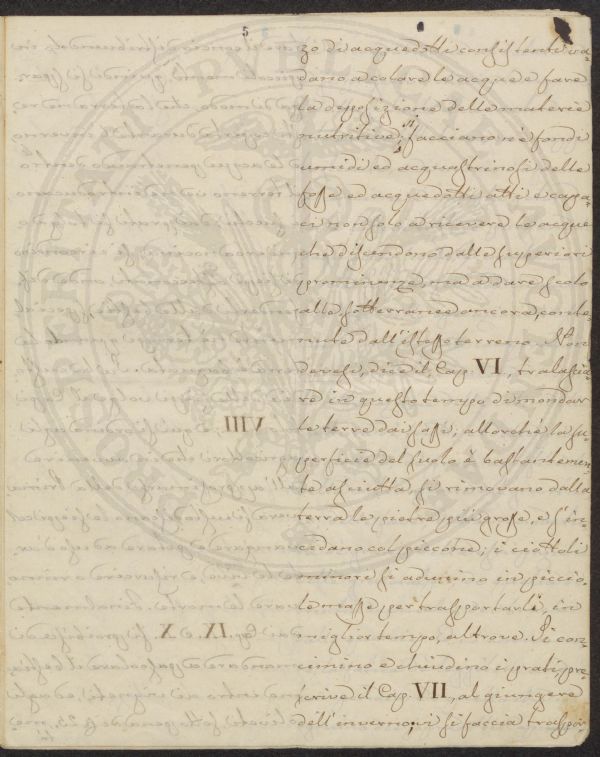 5
zo di acquedotti consistenti va-
dano a colare le acque e fare
la deposizione delle materie
nutritive; si facciano nè fondi
umidi ed acquastrinosi delle
fosse ed acquedotti atti e capa-
ci non solo a ricevere le acque
che discendono dalle superiori
prominenze, ma a dare scolo
alle sotterranee ancora, conte-
nute dall'istesso terreno. Non
devesi, dice il Cap. VI, tralascia-
re in questo tempo di mondar
le terre dai sassi; allorchè la su-
perficie del suolo è bastantemen-
te asciutta, si rimovano dalla
terra le pietre più grosse, e s'in-
cidano col piccone; i ciottoli
minori si adunino in piccio-
le masse per trasportarli, in
miglior tempo, altrove. Si con-
cimino e chiudino i prati, pre-
scrive il Cap. VII, al giungere
dell'inverno; vi si faccia traspor-